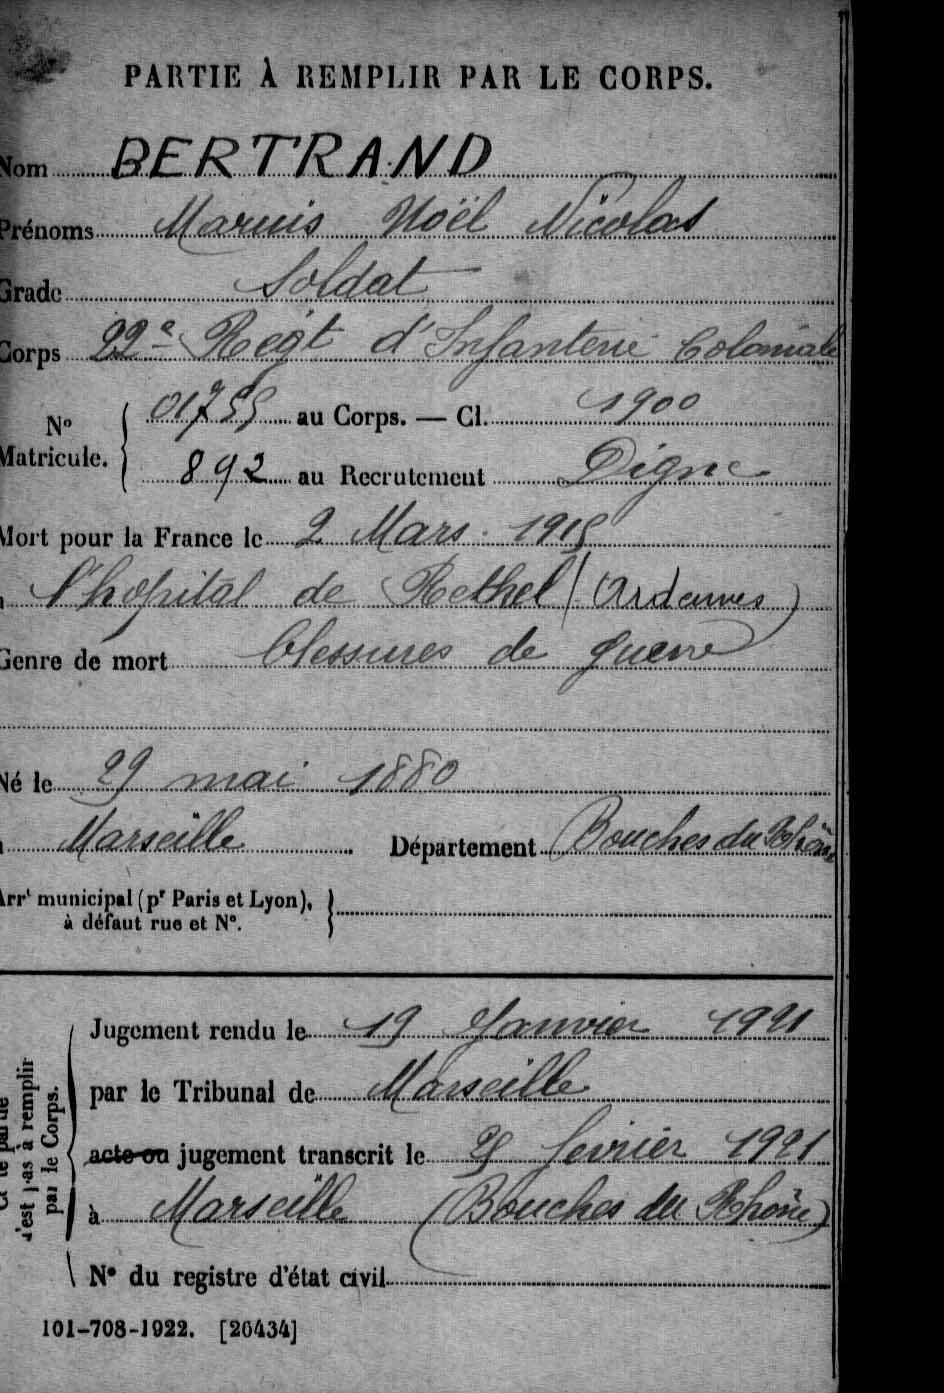 PARTIE À REMPLIR PAR LE CORPS.
Nom BERTRAND
Prénoms Marius Noël Nicolas
Grade Soldat
Corps 22e Régt d'Infanterie Coloniale
No Matricule. { 01755 au Corps. — Cl. 1900
892 au Recrutement Digne
Mort pour la France le 2 Mars 1915
à l'hôpital de Rethel (Ardennes)
Genre de mort blessures de guerre
Né le 29 mai 1880
à Marseille Département Bouches du Rhône
Arrt municipal (pr Paris et Lyon), à défaut rue et No. }
Jugement rendu le 19 Janvier 1921
par le Tribunal de Marseille
acte ou jugement transcrit le février 1921
à Marseille (Bouches du Rhône)
No du registre d'état civil
n'est pas à remplir
par le Corps.
101-708-1922. [26434]